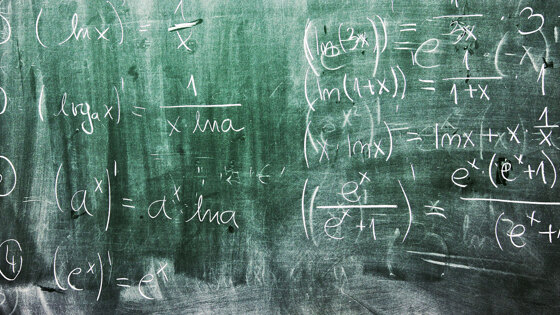 (ln x)' = 1/x
(log_a x)' = 1/(x·ln a)
(a^x)' = a^x · ln a
④ (e^x)' = e^x
1/3x · 3
(ln(1+x))' = 1/(1+x)
(x · ln x)' = ln x + x · 1/x
(e^x/(e^x+1))' = e^x · (e^x+1)
(e^x+